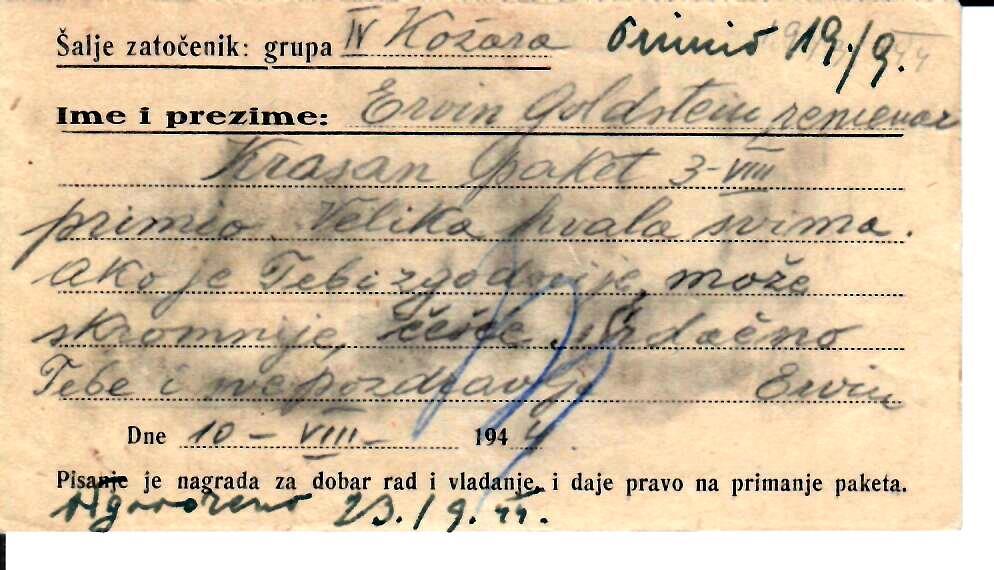 Šalje zatočenik: grupa IV Kožara primio 19./9.
Ime i prezime: Ervin Goldstein, remenar
Krasan paket 3-VIII
primio. Velika hvala svima.
Ako je Tebi zgodnije, može
skromnije, češće. Srdačno
Tebe i sve pozdravlja Ervin
Dne 10-VIII- 1944
Pisanje je nagrada za dobar rad i vladanje, i daje pravo na primanje paketa.
odgovoreno 23./9.44.